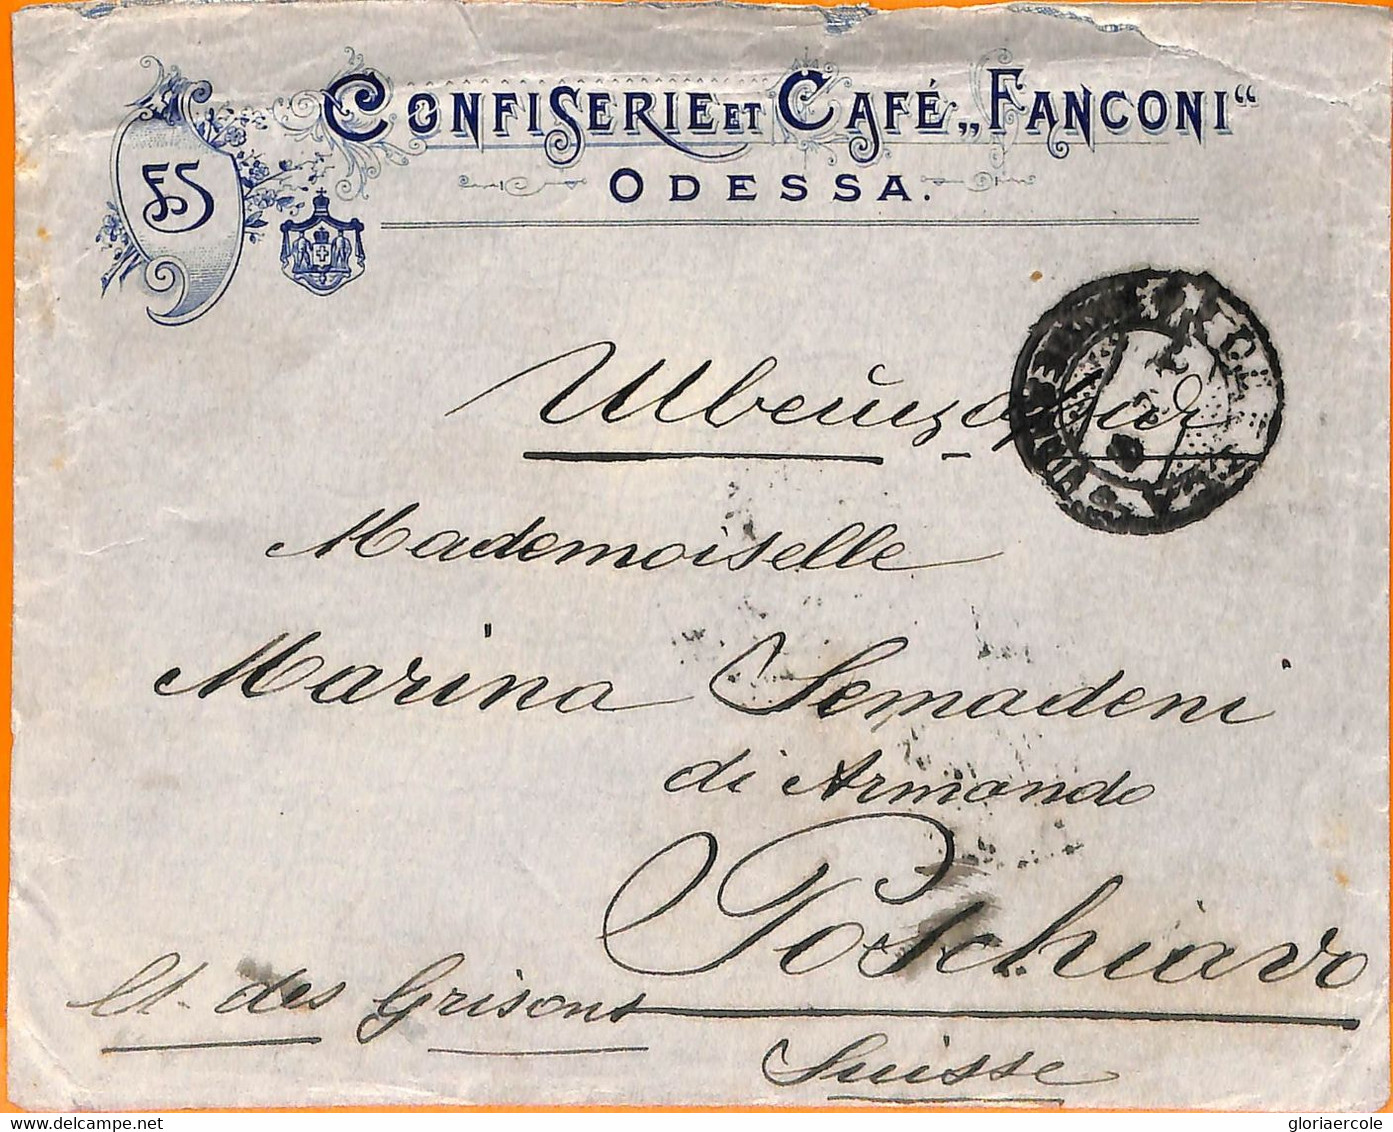 CONFISERIE ET CAFÉ „FANCONI“
ODESSA.
FS
Швейцарія
Mademoiselle
Marina Semadeni
di Armando
Poschiavo
Ct. des Grisons
Suisse
delcampe.net
gloriaercole